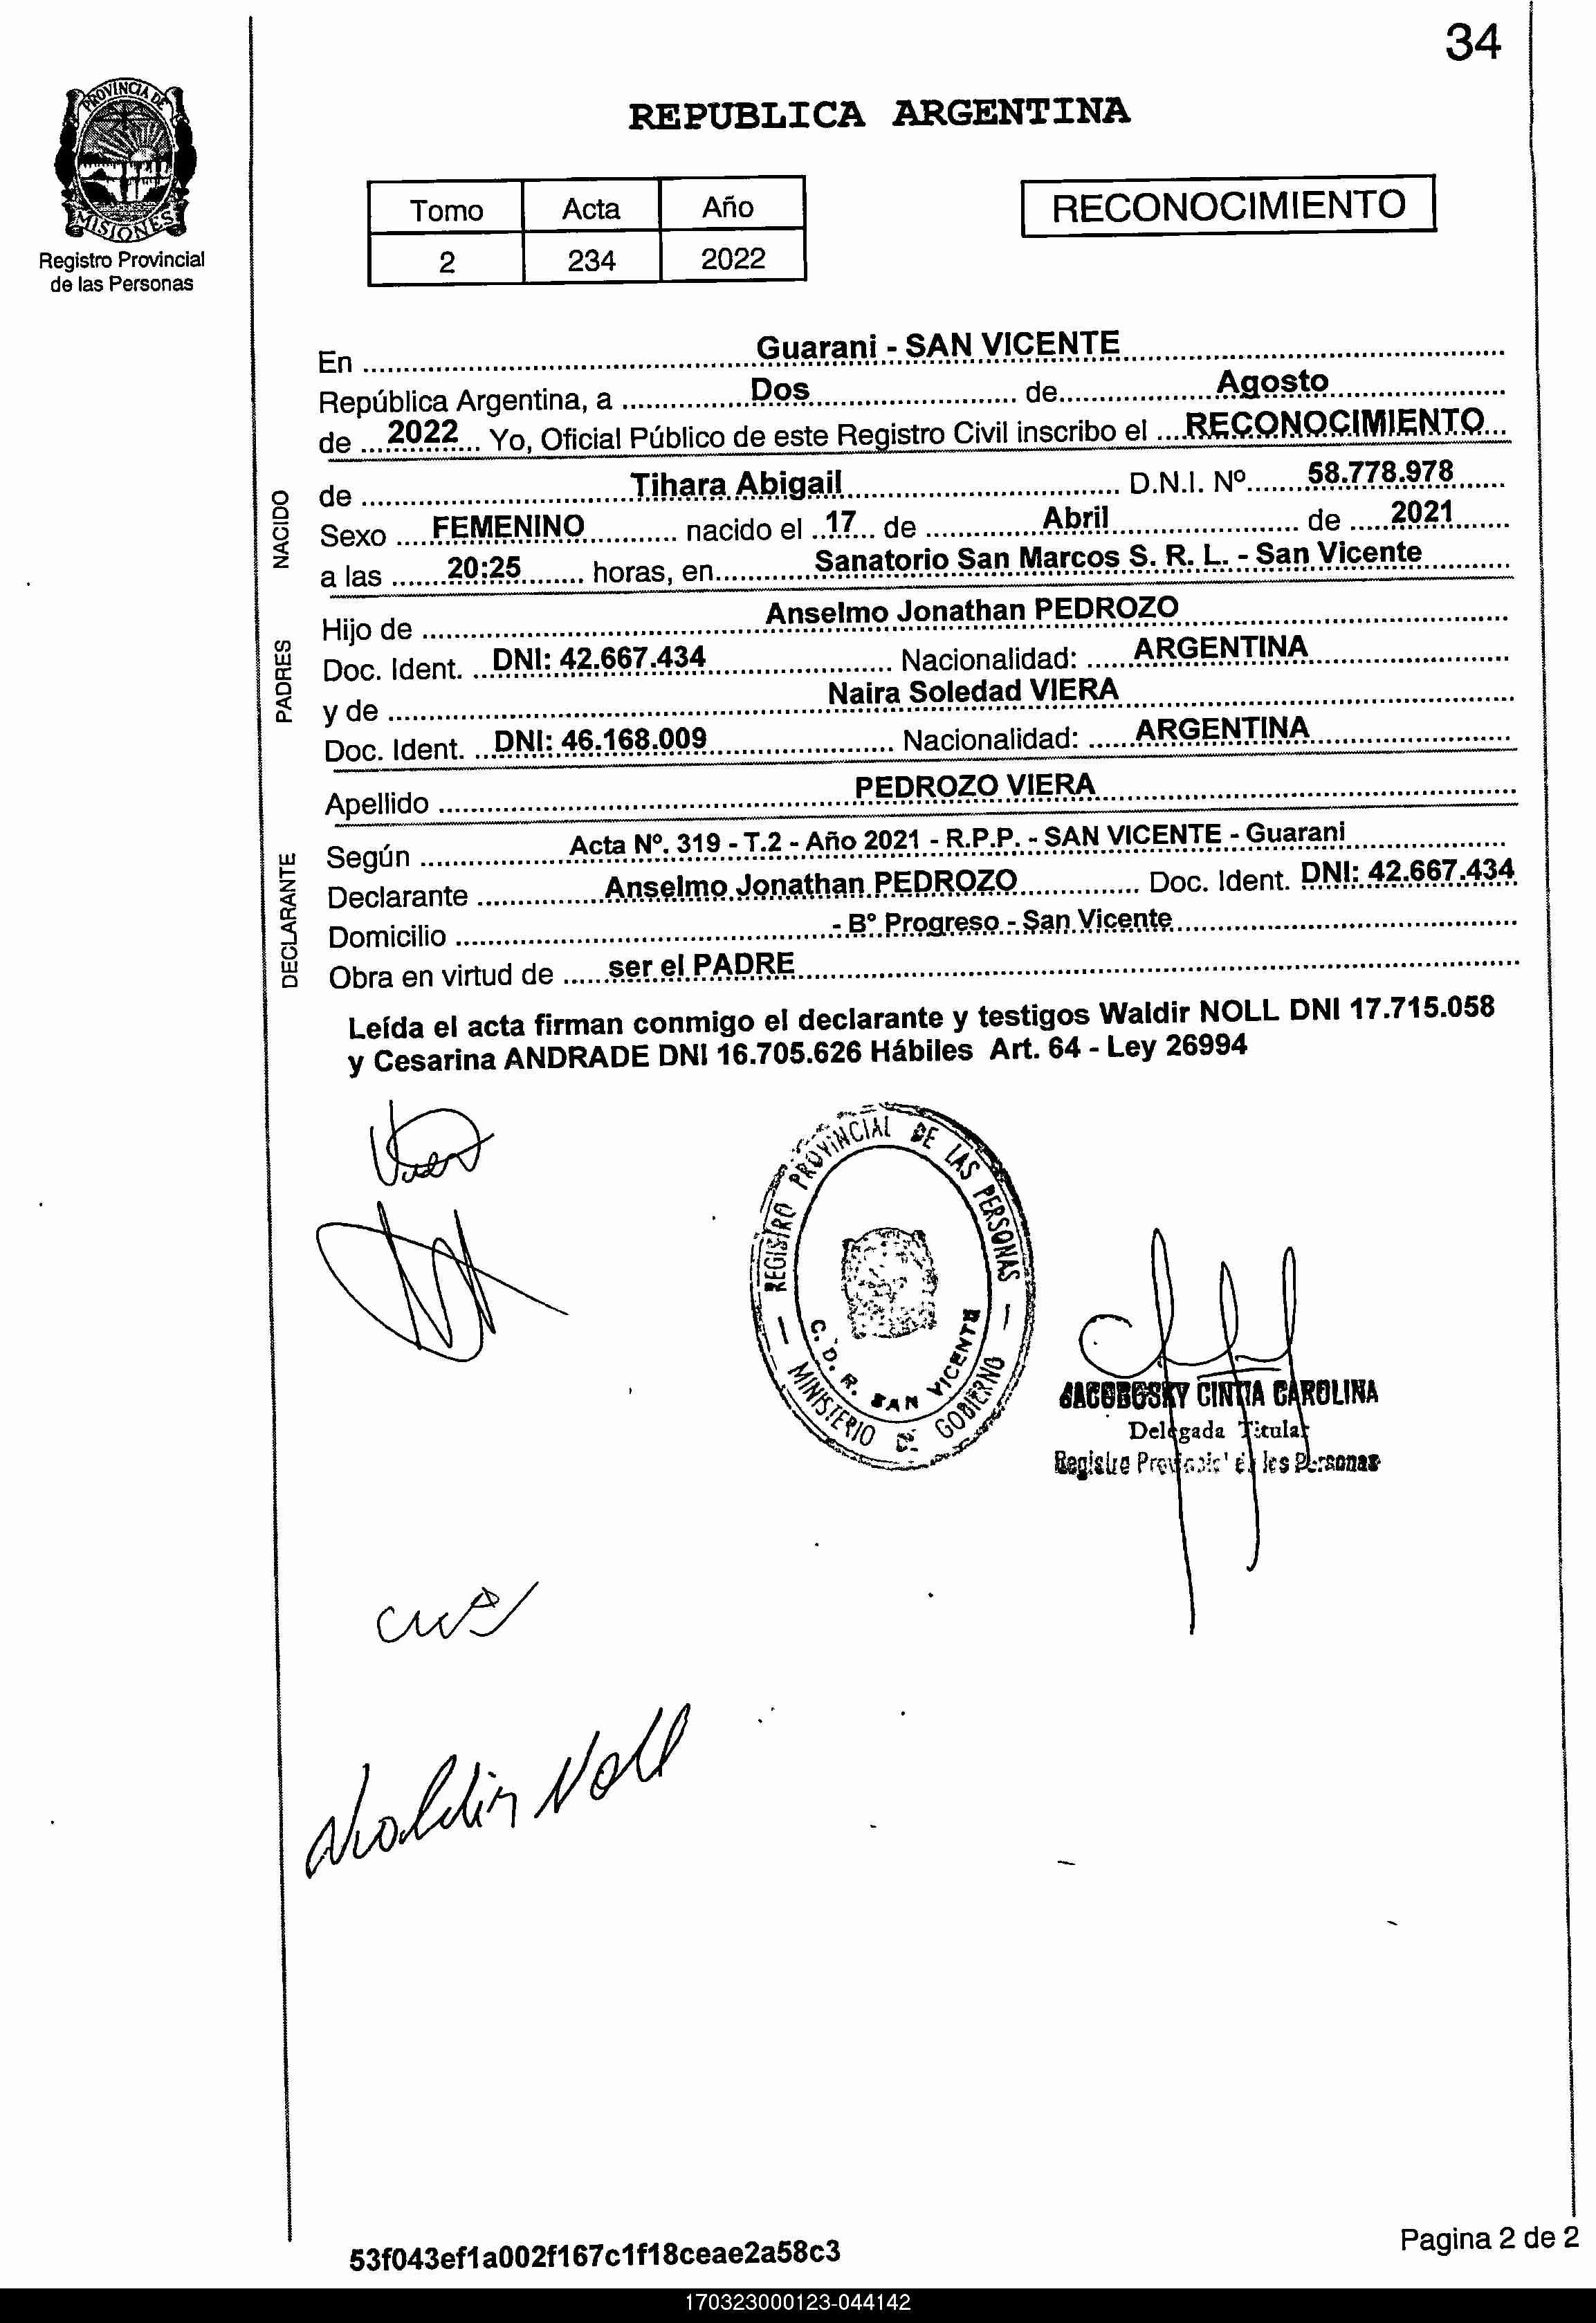 34
PROVINCIA DE
MISIONES
Registro Provincial
de las Personas
REPUBLICA ARGENTINA
Tomo Acta Año
2 234 2022
RECONOCIMIENTO
En Guarani - SAN VICENTE
República Argentina, a Dos de Agosto
de 2022 Yo, Oficial Público de este Registro Civil inscribo el RECONOCIMIENTO
NACIDO
de Tihara Abigail D.N.I. Nº 58.778.978
Sexo FEMENINO nacido el 17 de Abril de 2021
a las 20:25 horas, en Sanatorio San Marcos S. R. L. - San Vicente
PADRES
Hijo de Anselmo Jonathan PEDROZO
Doc. Ident. DNI: 42.667.434 Nacionalidad: ARGENTINA
y de Naira Soledad VIERA
Doc. Ident. DNI: 46.168.009 Nacionalidad: ARGENTINA
Apellido PEDROZO VIERA
DECLARANTE
Según Acta Nº. 319 - T.2 - Año 2021 - R.P.P. - SAN VICENTE - Guarani
Declarante Anselmo Jonathan PEDROZO Doc. Ident. DNI: 42.667.434
Domicilio - Bº Progreso - San Vicente
Obra en virtud de ser el PADRE
Leída el acta firman conmigo el declarante y testigos Waldir NOLL DNI 17.715.058
y Cesarina ANDRADE DNI 16.705.626 Hábiles Art. 64 - Ley 26994
REGISTRO PROVINCIAL DE LAS PERSONAS
C. D. R. SAN VICENTE
MINISTERIO DE GOBIERNO
CINTIA CAROLINA
Delegada Titular
Registro Provincial de las Personas
Waldir Noll
53f043ef1a002f167c1f18ceae2a58c3
Pagina 2 de 2
170323000123-044142